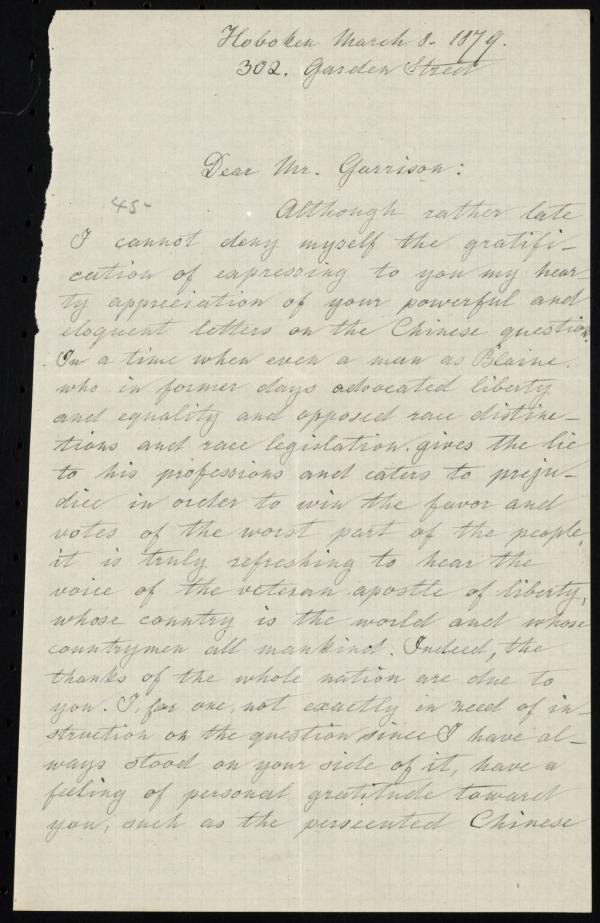 Hoboken March 8. 1879.
302. Garden Street
Dear Mr. Garrison:
45-
Although rather late
I cannot deny myself the gratifi-
cation of expressing to you my hear
ty appreciation of your powerful and
eloquent letters on the Chinese question.
In a time when even a man as Blaine,
who in former days advocated liberty
and equality and opposed race distinc-
tions and race legislation, gives the lie
to his professions and caters to preju-
dice in order to win the favor and
votes of the worst part of the people,
it is truly refreshing to hear the
voice of the veteran apostle of liberty,
whose country is the world and whose
countrymen all mankind. Indeed, the
thanks of the whole nation are due to
you. I, for one, not exactly in need of in-
struction on the question since I have al-
ways stood on your side of it, have a
feeling of personal gratitude toward
you, such as the persecuted Chinese